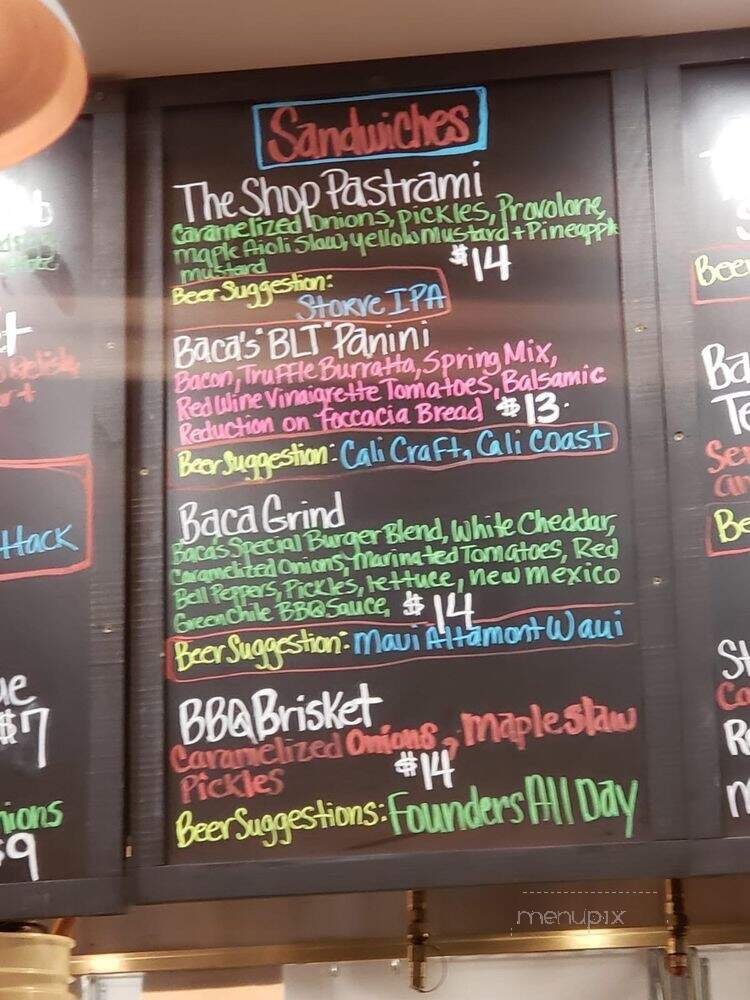 Sandwiches
The Shop Pastrami
Caramelized Onions, pickles, Provolone,
Maple Aioli Slaw, yellow Mustard + Pineapple
mustard
$14
Beer Suggestion:
Storve IPA
Baca's "BLT" Panini
Bacon, Truffle Burratta, Spring Mix,
Red Wine Vinaigrette Tomatoes, Balsamic
Reduction on foccacia Bread $13.
Beer Suggestion: Cali Craft, Cali Coast
Baca Grind
Bacas Special Burger Blend, White Cheddar,
Caramelized Onions, Marinated Tomatoes, Red
Bell Peppers, Pickles, lettuce, new mexico
Green Chile BBQ Sauce, $14
Beer Suggestion: Maui Altamont Waui
BBQ Brisket
Caramelized Onions, maple slaw
Pickles $14
Beer Suggestions: Founders All Day
Hack
$7
nions
$9
Beer
Ba
Be
menupix